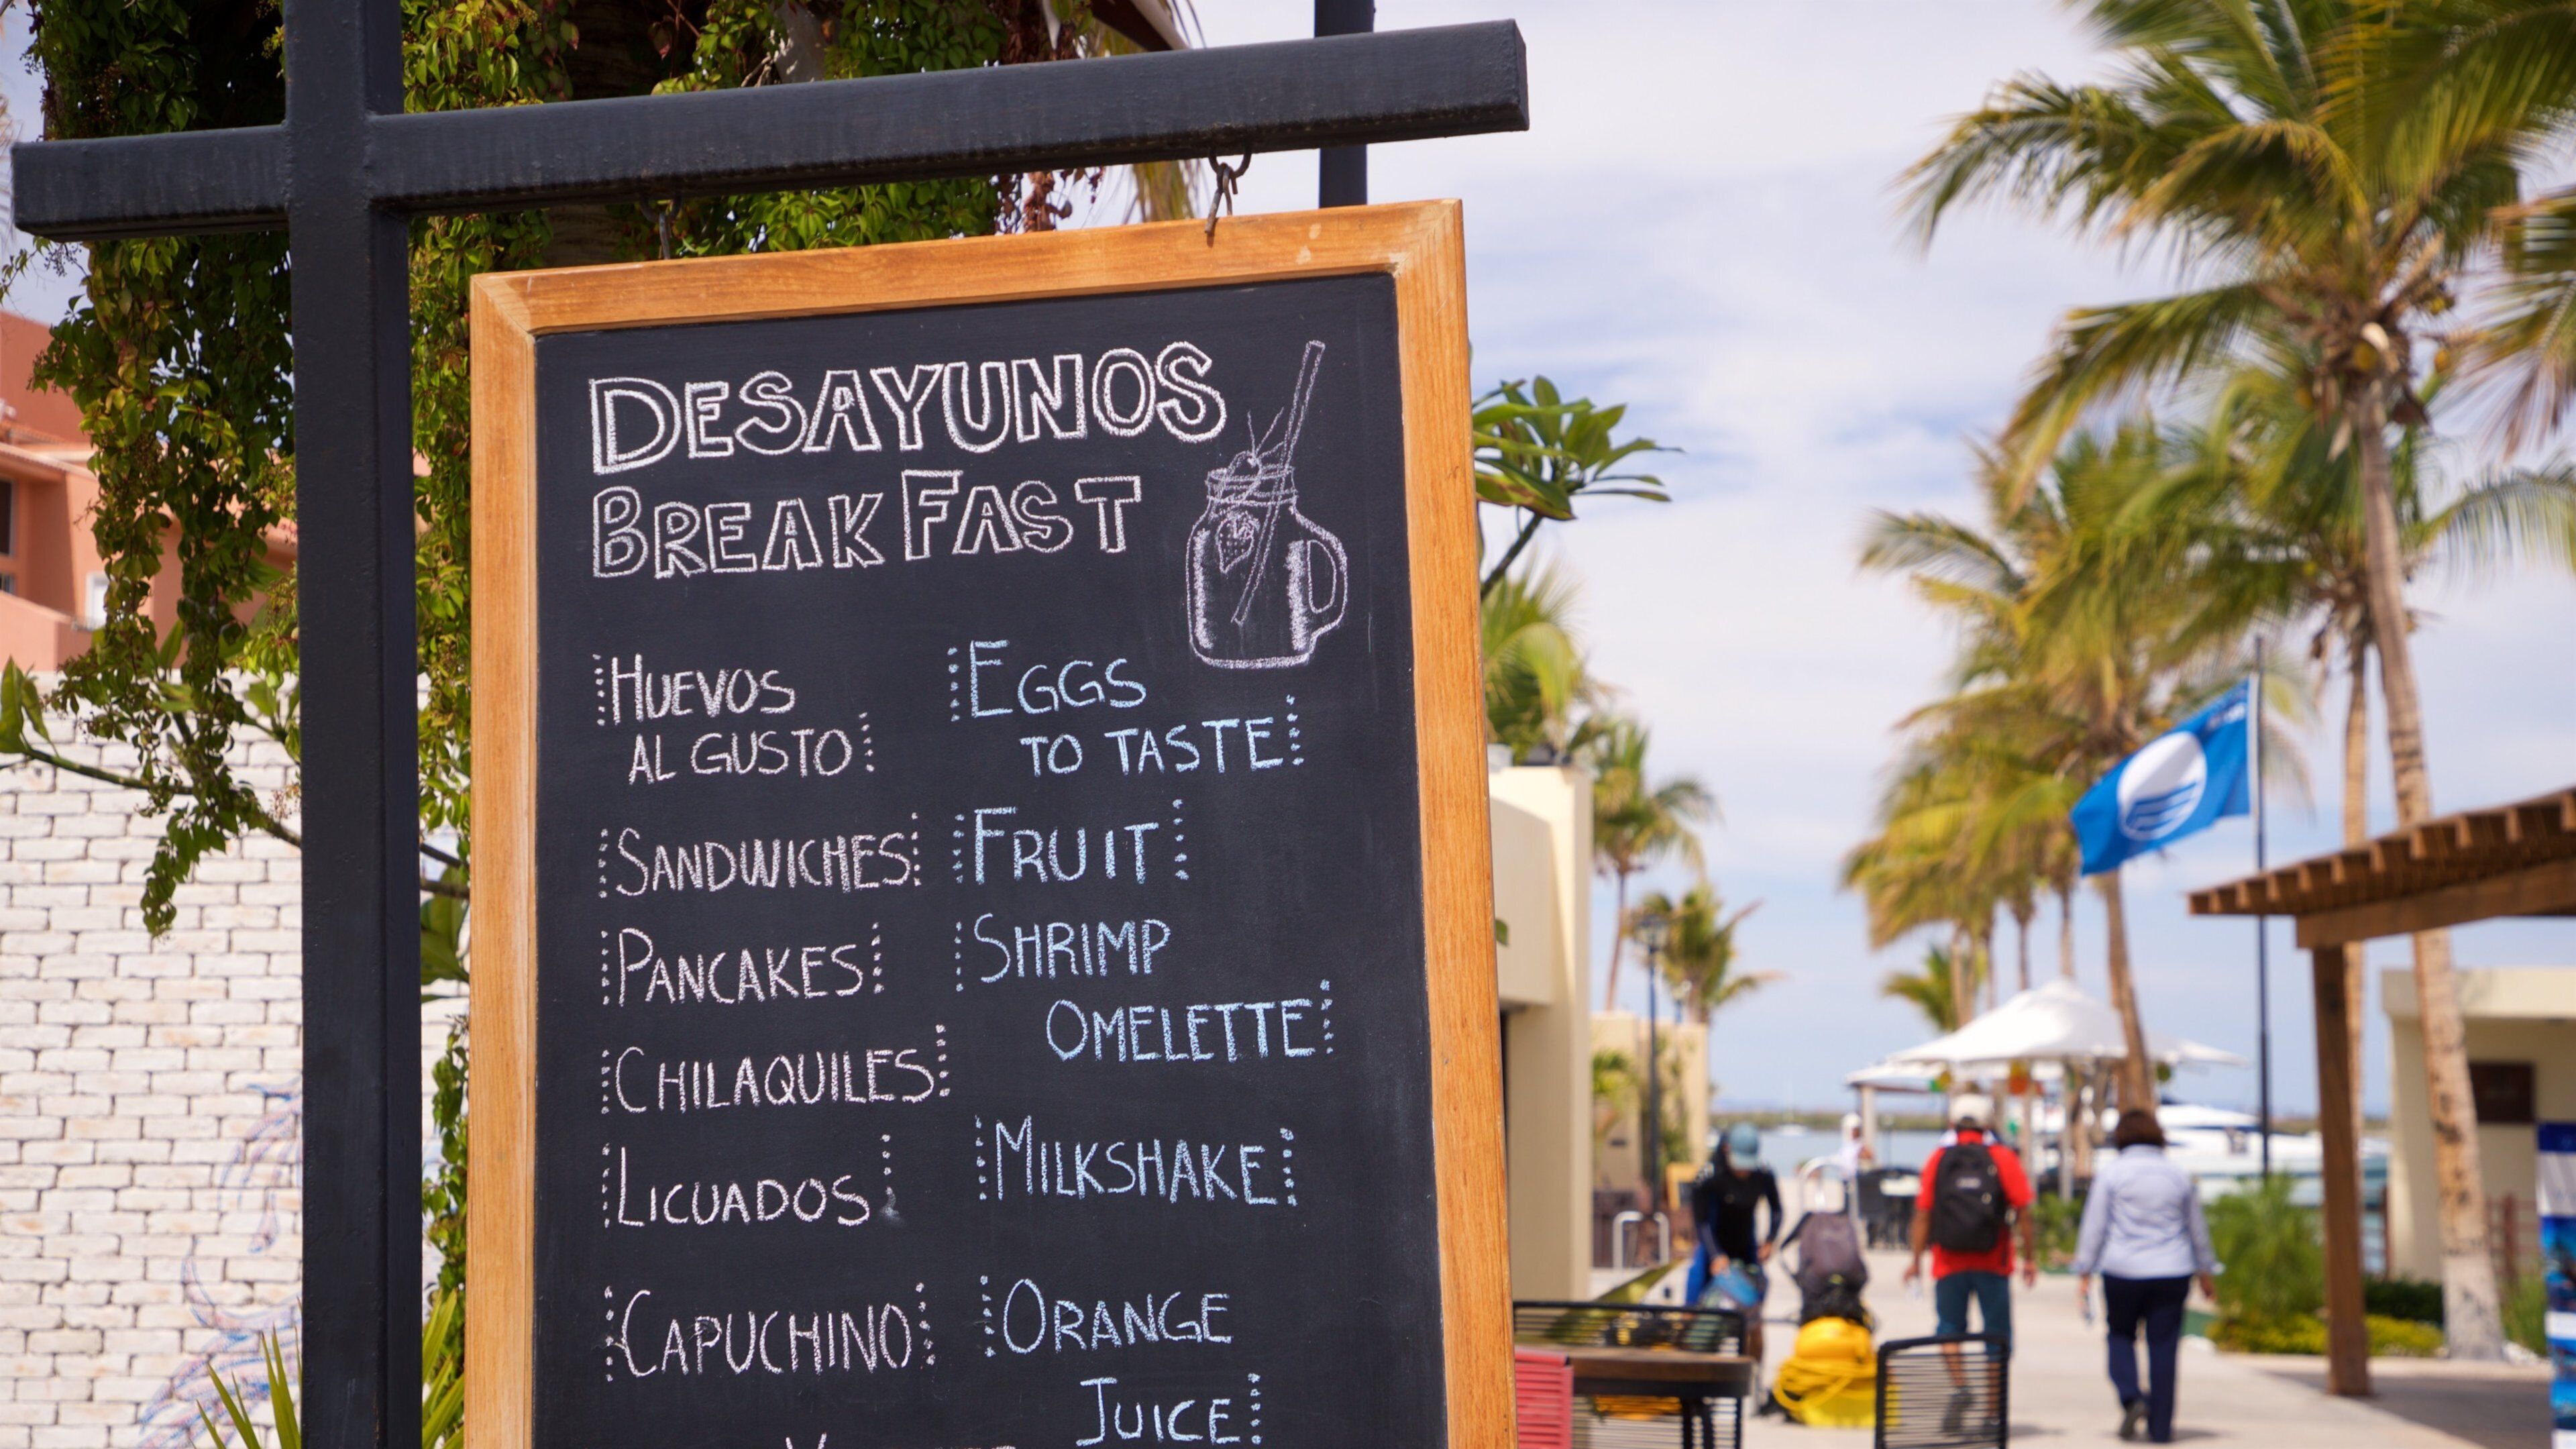 DESAYUNOS
BREAKFAST
HUEVOS
AL GUSTO
SANDWICHES
PANCAKES
CHILAQUILES
LICUADOS
CAPUCHINO
EGGS
TO TASTE
FRUIT
SHRIMP
OMELETTE
MILKSHAKE
ORANGE
JUICE